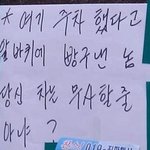 * 여기 주차 했다고
앞바퀴에 빵구낸 놈
당신 차는 무사할줄
아냐 ?
019-